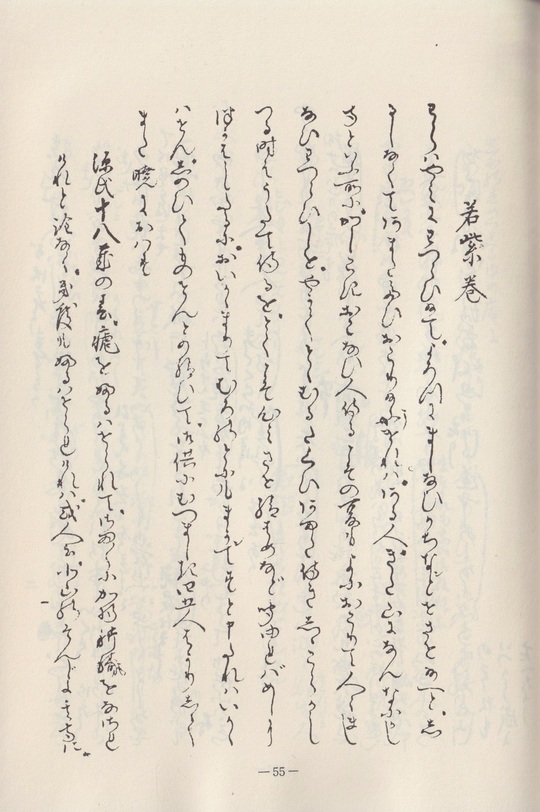 若紫巻
わらはやみにわつらひ給て。よろつにましなひかちなどまいらせ給へど。し
るしなくてあまたたひおこり給ければ。ある人。きた山になんなにがし
寺といふ所にかしこきおこなひ人侍る。こその夏もよにおこりて人々まし
なひわつらひしを。やかてとゝむるたくひあまた侍き。しゝこらかし
つる時はうたて侍るを。とくこそ心みさせ給はめなど聞ゆればめしに
つかはしたるに。おいかゝまりてむろのとにもまかでずと申たれはいかゝ
はせん。しのひてものせんとの給ひて。御供にむつましき四五人はかりして
また暁におはす
源氏十八歳の春。瘧を煩はせられて。加持祈祷をなされ
けれと詮なく。幾度も煩はせられければ。或人が北山の
—55—